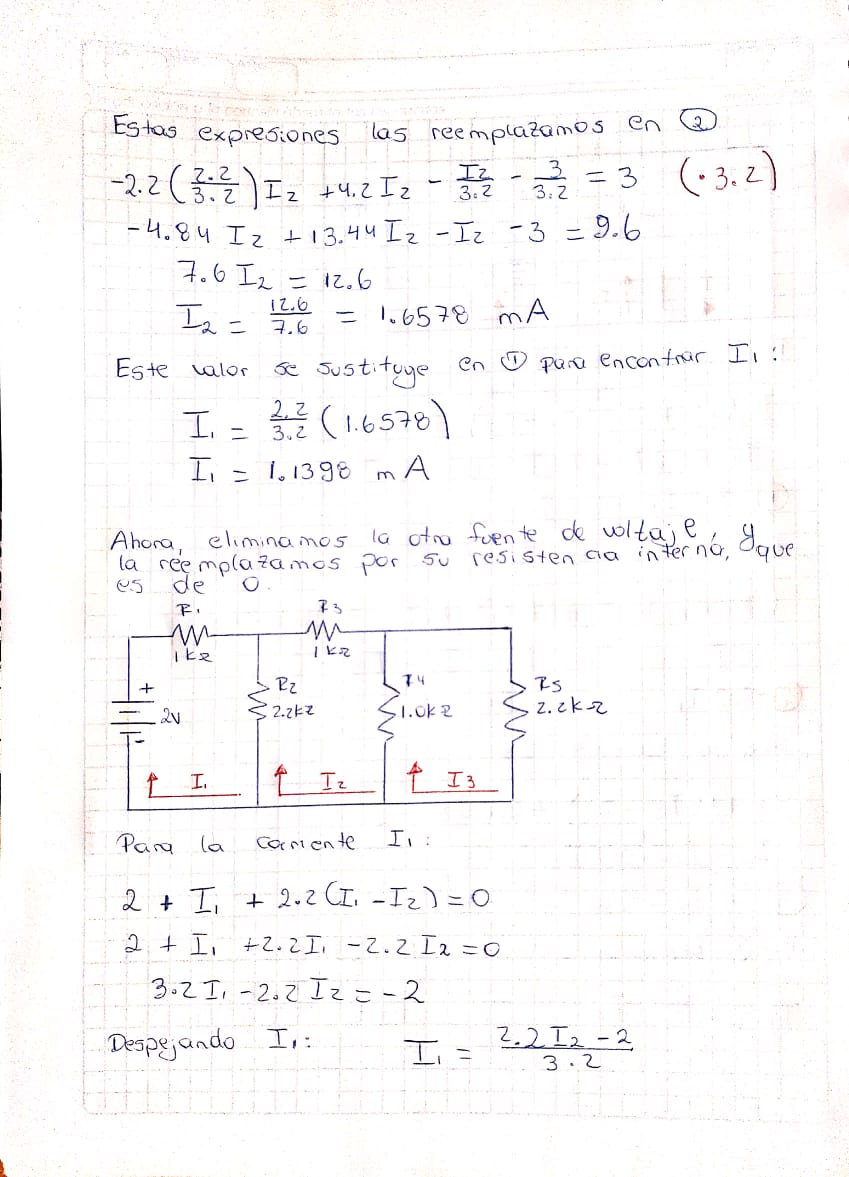 Estas expresiones las reemplazamos en ②
-2.2(2.2/3.2)I2 +4.2I2 - I2/3.2 - 3/3.2 = 3 (·3.2)
-4.84 I2 +13.44 I2 -I2 -3 = 9.6
7.6 I2 = 12.6
I2 = 12.6/7.6 = 1.6578 mA
Este valor se sustituye en ① para encontrar I1:
I1 = 2.2/3.2 (1.6578)
I1 = 1.1398 mA
Ahora, eliminamos la otra fuente de voltaje, y
la reemplazamos por su resistencia interna, que
es de 0.
R1 R3
1kΩ 1kΩ
+ R2 R4 R5
2V 2.2kΩ 1.0kΩ 2.2kΩ
-
I1 I2 I3
Para la corriente I1:
2 + I1 + 2.2(I1 -I2)=0
2 + I1 +2.2I1 -2.2I2 =0
3.2I1 -2.2I2 = -2
Despejando I1: I1 = 2.2I2 -2/3.2